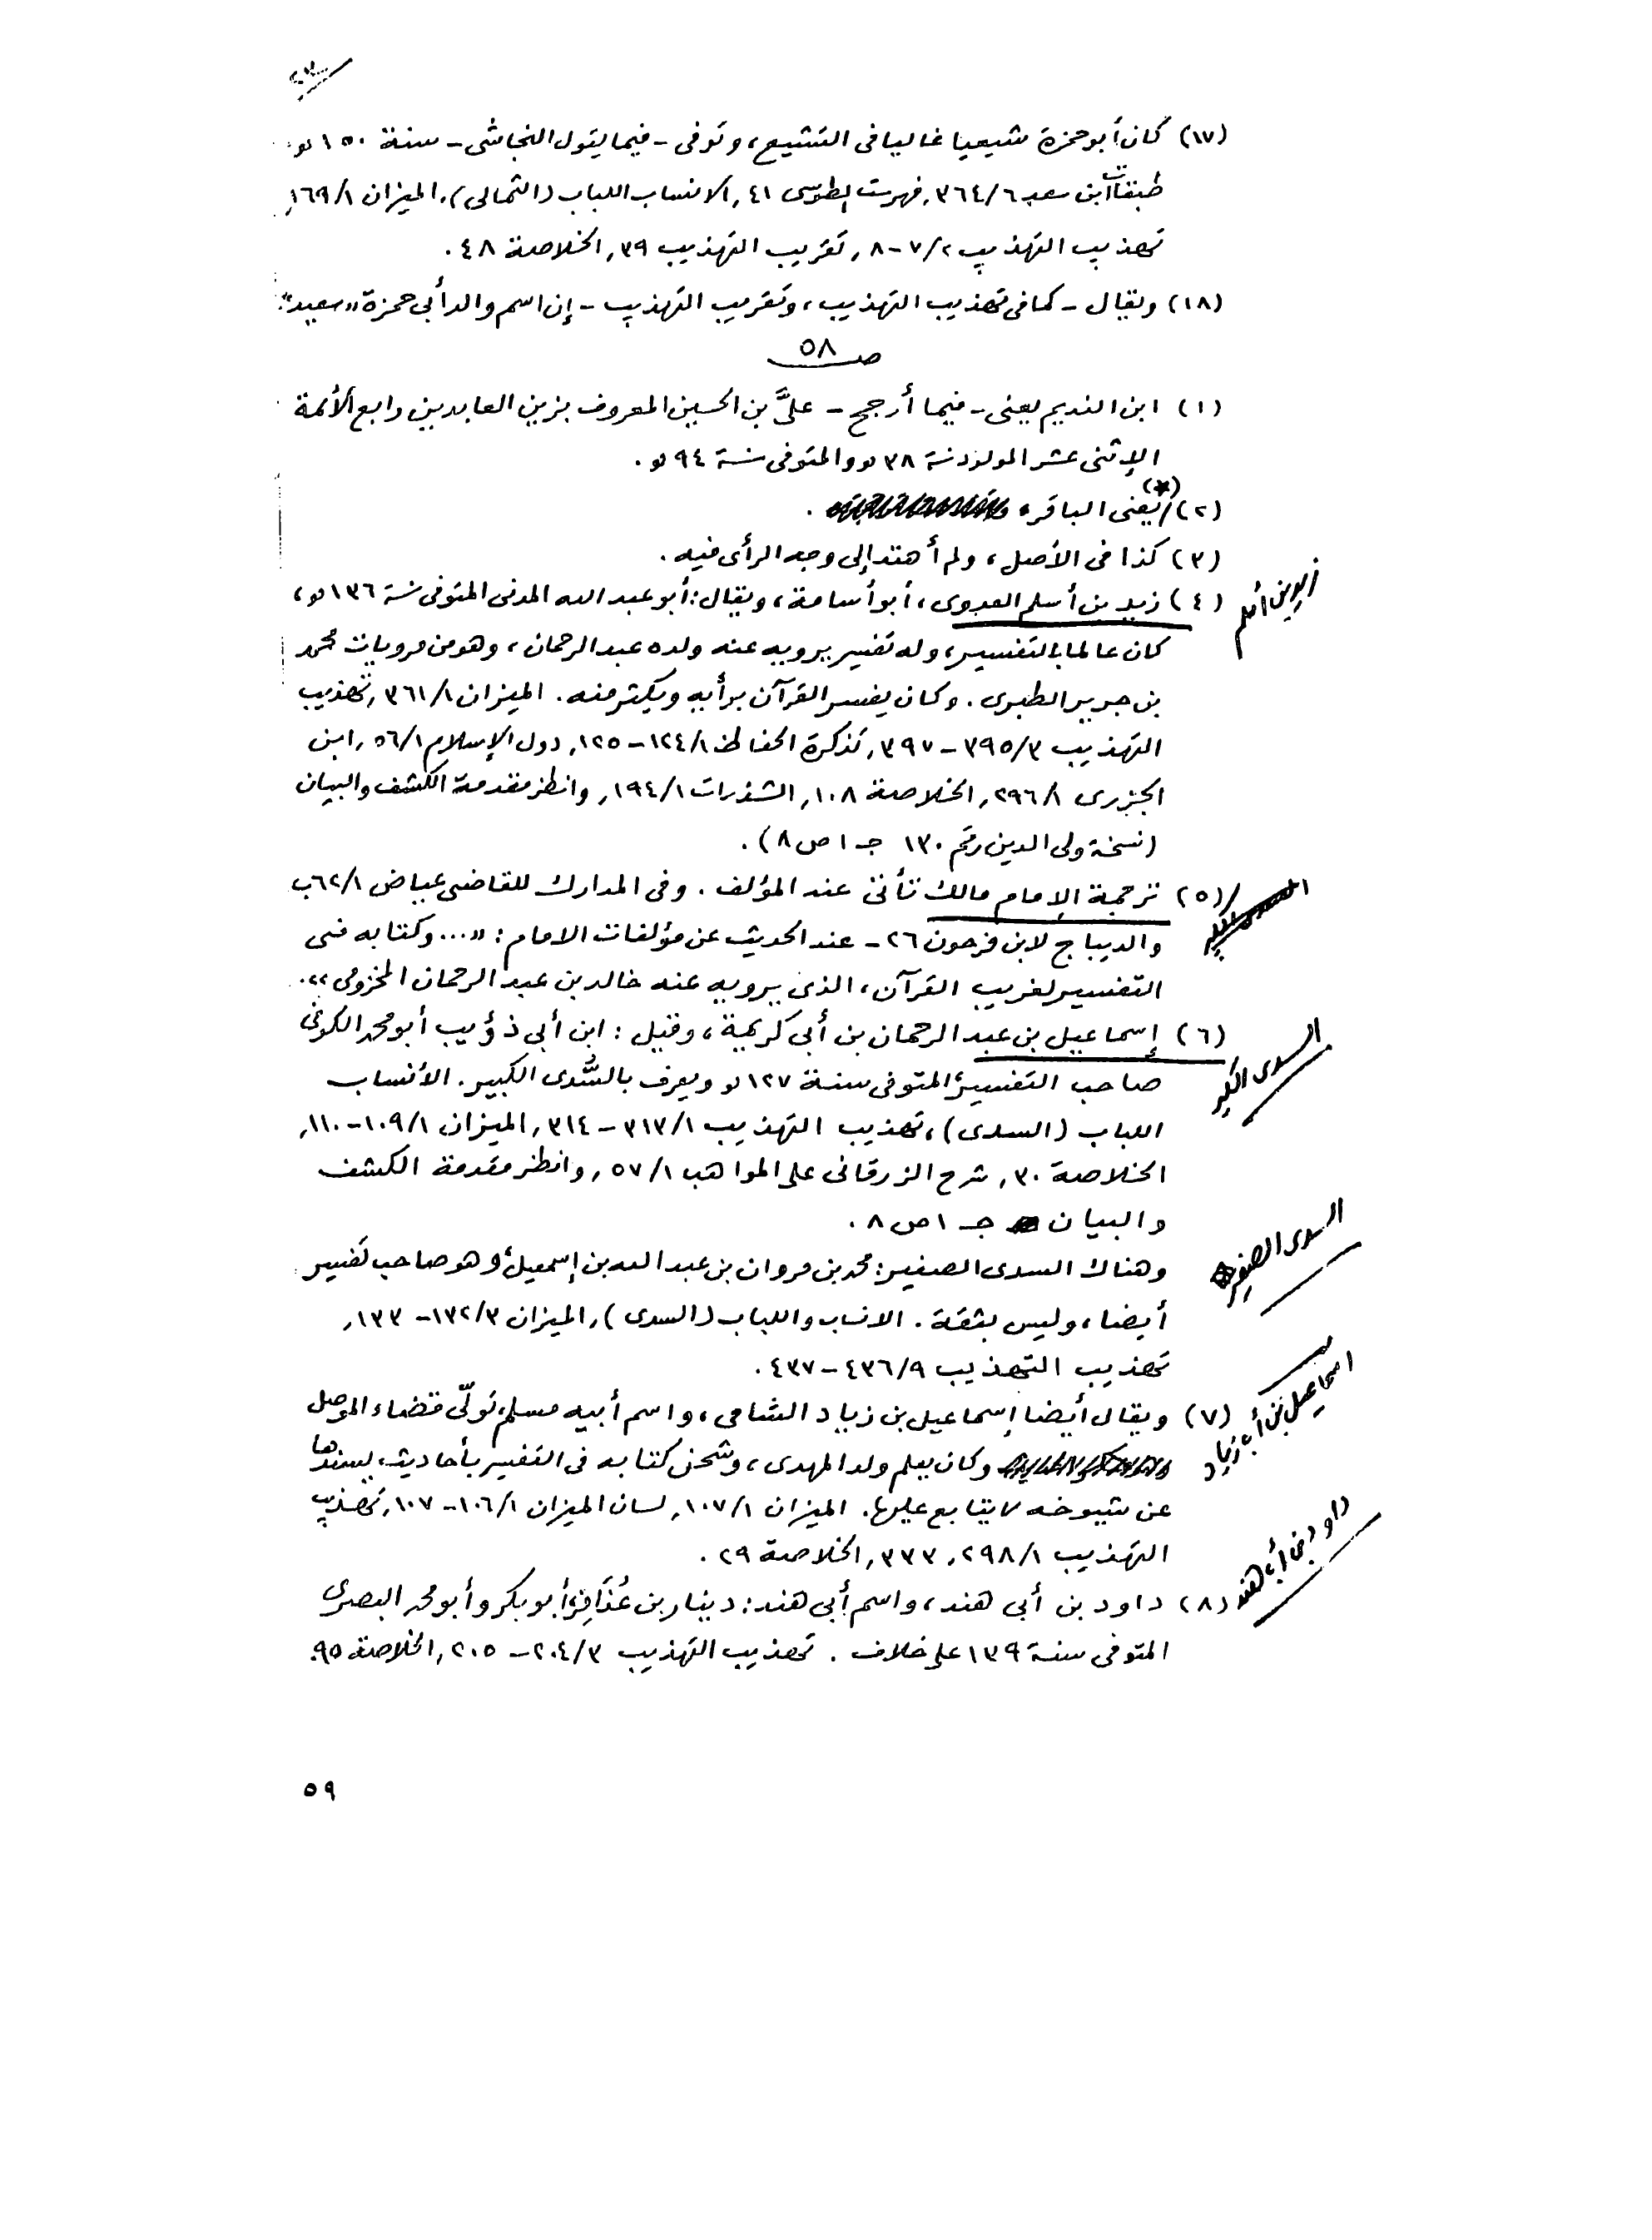 (١٧) كان أبو حمزة شيعيا غاليا فى التشيع، وتوفى - فيما يقول النجاشى - سنة ١٥٠ هـ.
طبقات ابن سعد ٣٦٤/٦, فهرست الطوسى ٤١, الانساب اللباب (الثمالى), الميزان ١٦٩/١,
تهذيب التهذيب ٧/٢-٨, تقريب التهذيب ٣٩, الخلاصة ٤٨.
(١٨) ويقال - كما فى تهذيب التهذيب، وتقريب التهذيب - إن اسم والد أبى حمزة "سعيد".
صـ ٥٨
(١) ابن النديم يعنى - فيما أرجح - علىَّ بن الحسين المعروف بزين العابدين رابع الأئمة
الإثنى عشر المولود سنة ٣٨ هـ والمتوفى سنة ٩٤ هـ.
(٢) (*) يعنى الباقر.
(٣) كذا فى الأصل، ولم أهتد إلى وجه الرأى فيه.
زيد بن أسلم
(٤) زيد بن أسلم العدوى، أبو أسامة، ويقال: أبو عبد الله المدنى المتوفى سنة ١٣٦ هـ،
كان عالما بالتفسير، وله تفسير يرويه عنه ولده عبد الرحمان، وهو من مرويات محمد
بن جرير الطبرى. وكان يفسر القرآن برأيه ويكثر منه. الميزان ٣٦١/١, تهذيب
التهذيب ٣٩٥/٣-٣٩٧, تذكرة الحفاظ ١٢٤/١-١٢٥, دول الإسلام ٥٦/١, ابن
الجزرى ٢٩٦/١, الخلاصة ١٠٨, الشذرات ١٩٤/١, وانظر مقدمة الكشف والبيان
(نسخة ولى الدين رقم ١٣٠ جـ ١ ص ٨).
(٥) ترجمة الإمام مالك تأتى عند المؤلف. وفى المدارك للقاضى عياض ٦٢/١ب
والديباج لابن فرحون ٢٦ - عند الحديث عن مؤلفات الامام: "... وكتابه فى
التفسير لغريب القرآن، الذى يرويه عنه خالد بن عبد الرحمان المخزومى".
السدى الكبير
(٦) إسماعيل بن عبد الرحمان بن أبى كريمة، وقيل: ابن أبى ذؤيب أبو محمد الكوفى
صاحب التفسير، المتوفى سنة ١٢٧ هـ ويعرف بالسُّدى الكبير. الأنساب
اللباب (السدى)، تهذيب التهذيب ٣١٣/١-٣١٤, الميزان ١٠٩/١-١١٠,
الخلاصة ٣٠, شرح الزرقانى على المواهب ٥٧/١, وانظر مقدمة الكشف
والبيان جـ ١ ص ٨.
السدى الصغير
وهناك السدى الصغير: محمد بن مروان بن عبد الله بن إسمعيل، وهو صاحب تفسير
أيضا، وليس بثقة. الانساب واللباب (السدى), الميزان ١٣٢/٣-١٣٣,
تهذيب التهذيب ٤٣٦/٩-٤٣٧.
اسماعيل بن أبى زياد
(٧) ويقال أيضا إسماعيل بن زياد الشامى، واسم أبيه مسلم، تولّى قضاء الموصل
وكان يعلم ولد المهدى، وشحن كتابه فى التفسير بأحاديث يسندها
عن شيوخه لا يتابع عليها. الميزان ١٠٧/١, لسان الميزان ١٠٦/١-١٠٧, تهذيب
التهذيب ٢٩٨/١, ٣٣٣, الخلاصة ٢٩.
داود بن أبى هند
(٨) داود بن أبى هند، واسم أبى هند: دينار بن عُذَافِر، أبو بكر وأبو محمد البصرى
المتوفى سنة ١٣٩ على خلاف. تهذيب التهذيب ٢٠٤/٣-٢٠٥, الخلاصة ٩٥.
٥٩